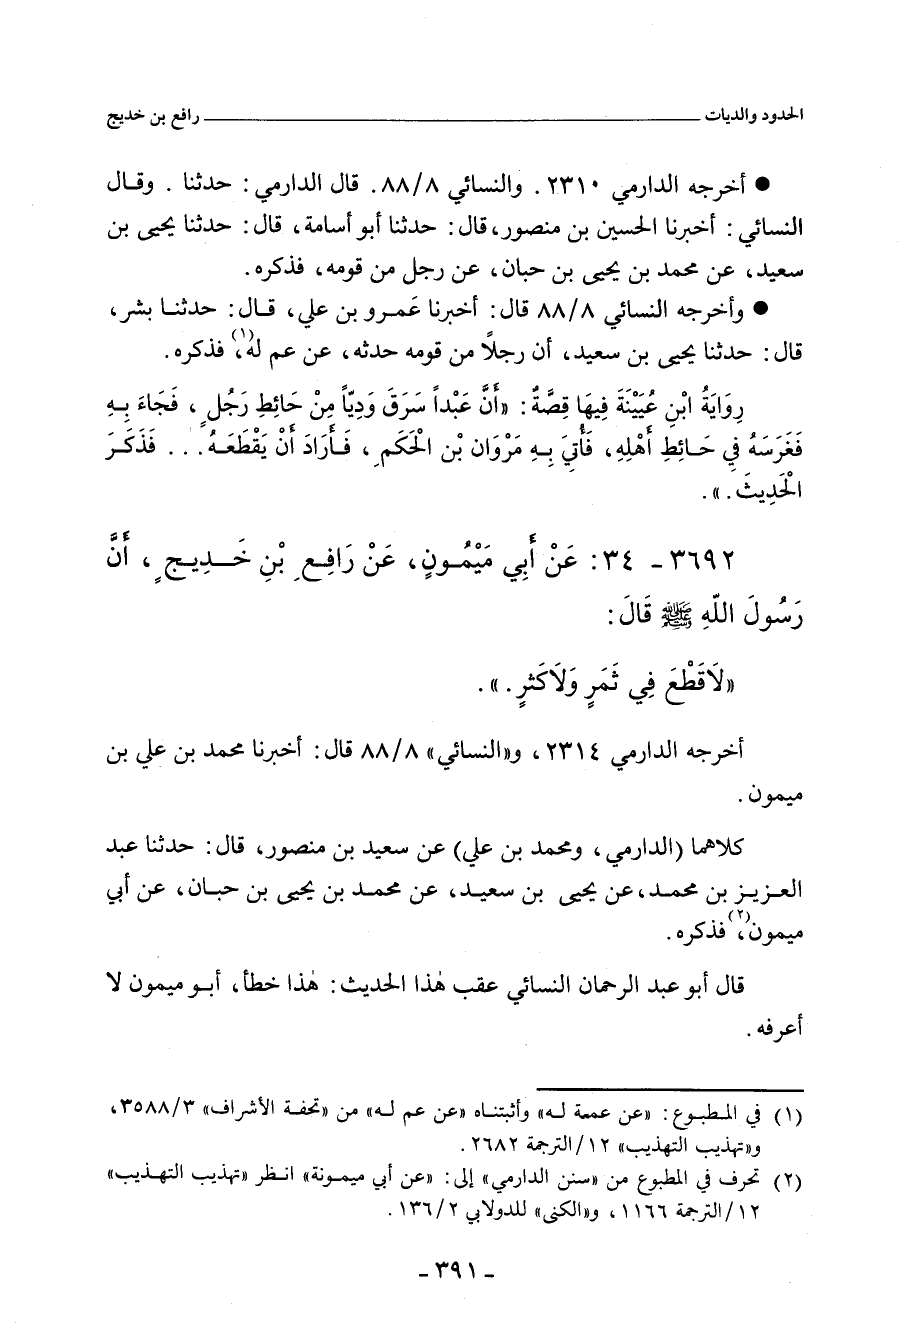 الحدود والديات ــــــــــــــــــــــــــــــــــــــــــــــــ رافع بن خديج
● أخرجه الدارمي ٢٣١٠. والنسائي ٨٨/٨. قال الدارمي: حدثنا. وقال
النسائي: أخبرنا الحسين بن منصور، قال: حدثنا أبو أسامة، قال: حدثنا يحيى بن
سعيد، عن محمد بن يحيى بن حبان، عن رجل من قومه، فذكره.
● وأخرجه النسائي ٨٨/٨ قال: أخبرنا عَمرو بن علي، قال: حدثنا بشر،
قال: حدثنا يحيى بن سعيد، أن رجلاً من قومه حدثه، عن عم له(١)، فذكره.
رِوَايَةُ ابْنِ عُيَيْنَةَ فِيهَا قِصَّةٌ: «أَنَّ عَبْداً سَرَقَ وَدِيّاً مِنْ حَائِطِ رَجُلٍ، فَجَاءَ بِهِ
فَغَرَسَهُ فِي حَائِطِ أَهْلِهِ، فَأُتِيَ بِهِ مَرْوَان بْن الْحَكَمِ، فَأَرَادَ أَنْ يَقْطَعَهُ... فَذَكَرَ
الْحَدِيثَ.».
٣٦٩٢ - ٣٤: عَنْ أَبِي مَيْمُونٍ، عَنْ رَافِعِ بْنِ خَدِيجٍ، أَنَّ
رَسُولَ اللَّهِ ﷺ قَالَ:
«لَا قَطْعَ فِي ثَمَرٍ وَلَا كَثَرٍ.».
أخرجه الدارمي ٢٣١٤، و«النسائي» ٨٨/٨ قال: أخبرنا محمد بن علي بن
ميمون.
كلاهما (الدارمي، ومحمد بن علي) عن سعيد بن منصور، قال: حدثنا عبد
العزيز بن محمد، عن يحيى بن سعيد، عن محمد بن يحيى بن حبان، عن أبي
ميمون(٢)، فذكره.
قال أبو عبد الرحمان النسائي عقب هٰذا الحديث: هٰذا خطأ، أبو ميمون لا
أعرفه.
(١) في المطبوع: «عن عمة له» وأثبتناه «عن عم له» من «تحفة الأشراف» ٣٥٨٨/٣،
و«تهذيب التهذيب» ١٢/الترجمة ٢٦٨٢.
(٢) تحرف في المطبوع من «سنن الدارمي» إلى: «عن أبي ميمونة» انظر «تهذيب التهذيب»
١٢/الترجمة ١١٦٦، و«الكنى» للدولابي ١٣٦/٢.
- ٣٩١ -